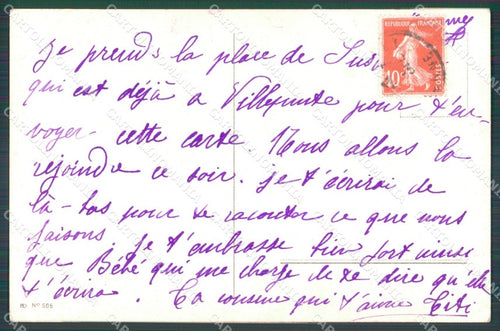 Je prends la place de Suz
qui est déjà a Villepinte pour t'en-
voyer cette carte. Nous allons la
rejoindre ce soir. je t'écrirai de
là-bas pour te raconter ce que nous
faisons. je t'embrasse bien fort ainsi
que Bébé qui me charge de te dire qu'elle
t'écrira. Ta cousine qui t'aime Titi
REPUBLIQUE FRANÇAISE
10c
POSTES
RD Nº 505